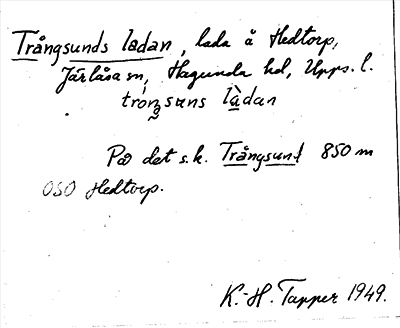 Trångsunds ladan, lada å Hedtorp,
Järlåsa sn, Hagunda hd, Upps. l.
tróŋsuns làdan
På det s.k. Trångsund 850 m
OSO Hedtorp.
K.-H. Tapper 1949.